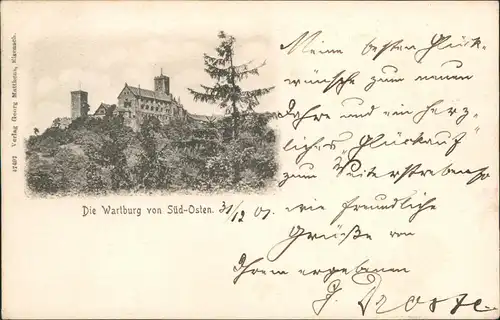 17402 Verlag Georg Matthaus, Eisenach.
Die Wartburg von Süd-Osten.
31/12 01.
Meine besten Glück-
wünsche zum neuen
Jahre und ein herz-
liches "Glückauf"
zum Weiterstreben so
wie freundliche
Grüße von
Ihrem ergebenen
J. Droste